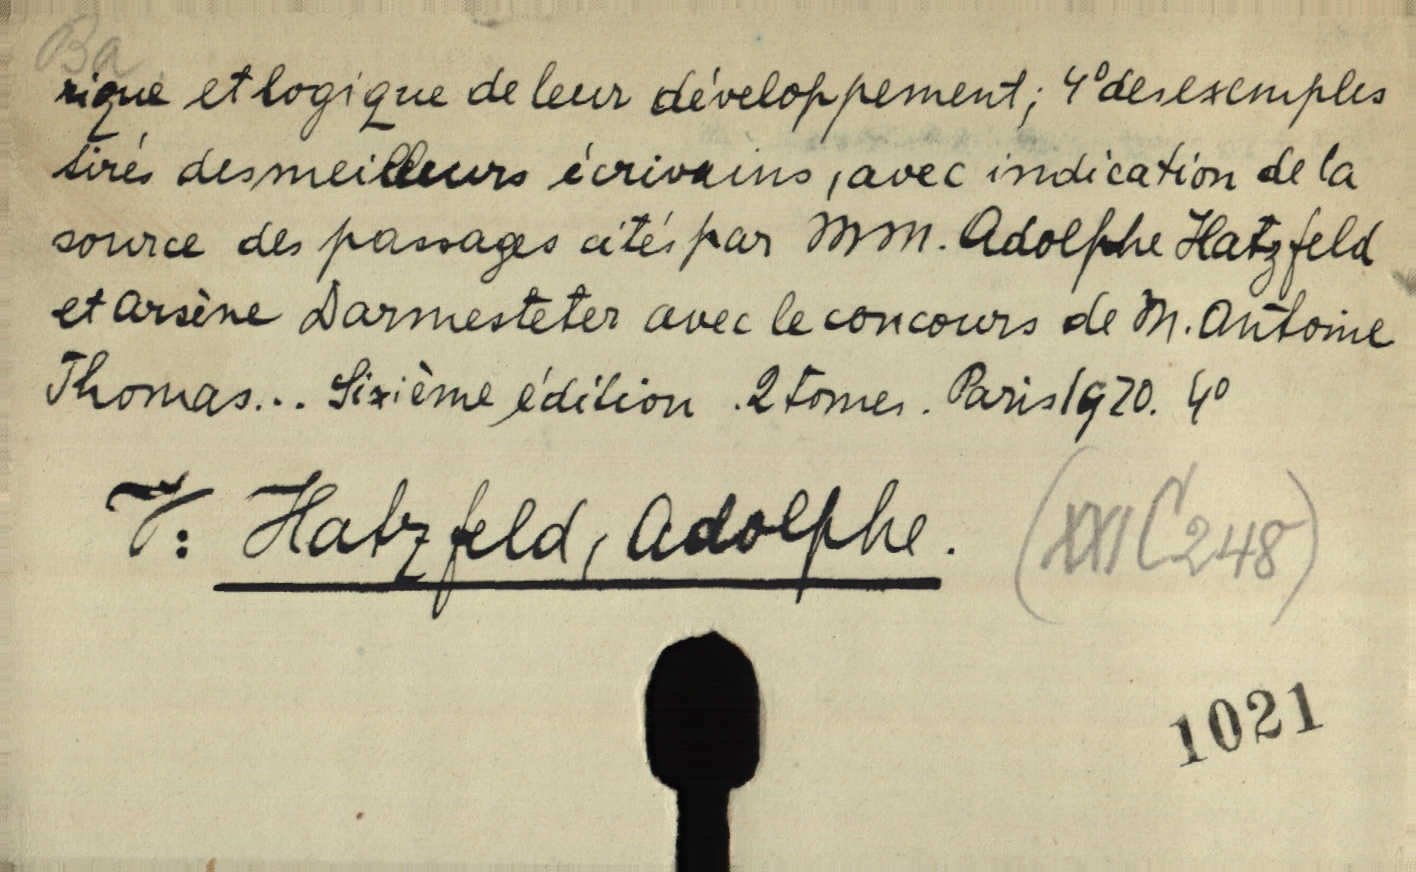 Ba
rique et logique de leur développement; 4° des exemples
tirés des meilleurs écrivains, avec indication de la
source des passages cités par MM. Adolphe Hatzfeld
et Arsène Darmesteter avec le concours de M. Antoine
Thomas... Sixième édition. 2 tomes. Paris 1920. 4°
V: Hatzfeld, Adolphe. (XXI C 248)
1021